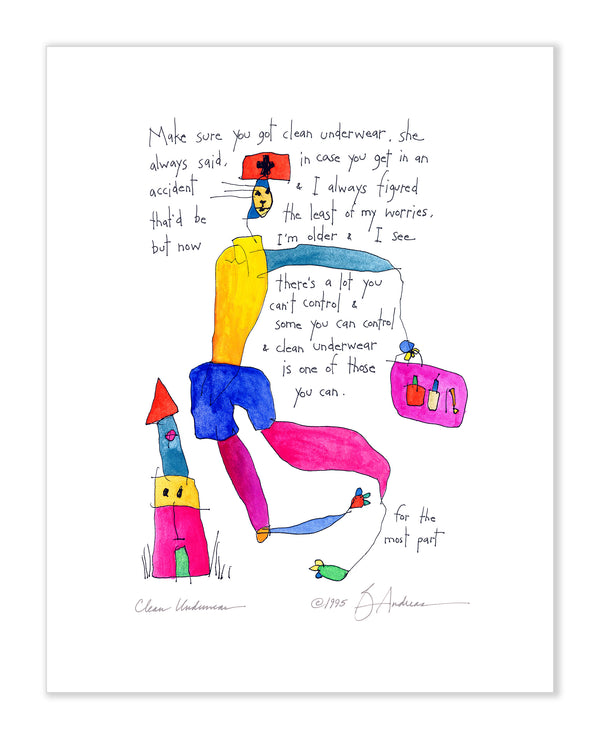 Make sure you got clean underwear, she
always said, in case you get in an
accident & I always figured
that'd be the least of my worries,
but now I'm older & I see
there's a lot you
can't control &
some you can control
& clean underwear
is one of those
you can.
for the
most part
Clean Underwear ©1995 Andreas